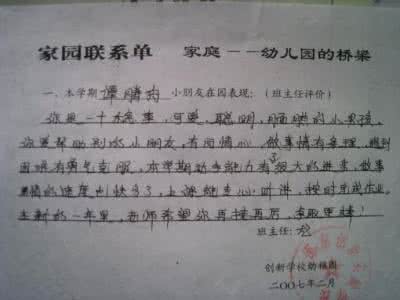 家园联系单 家庭——幼儿园的桥梁
一、本学期谭腾 小朋友在园表现：（班主任评价）
你是一个懂事，可爱，聪明，腼腆的小男孩，
你爱帮助别的小朋友，有同情心，做事情有条理，遇到
困难有勇气克服，本学期动手能力有了很大的进步，做事
情的速度也快多了，上课能专心听讲，按时完成作业，
在新的一年里，老师希望你再接再厉，争取更棒！
班主任：
创新学校幼稚园
二〇〇七年二月